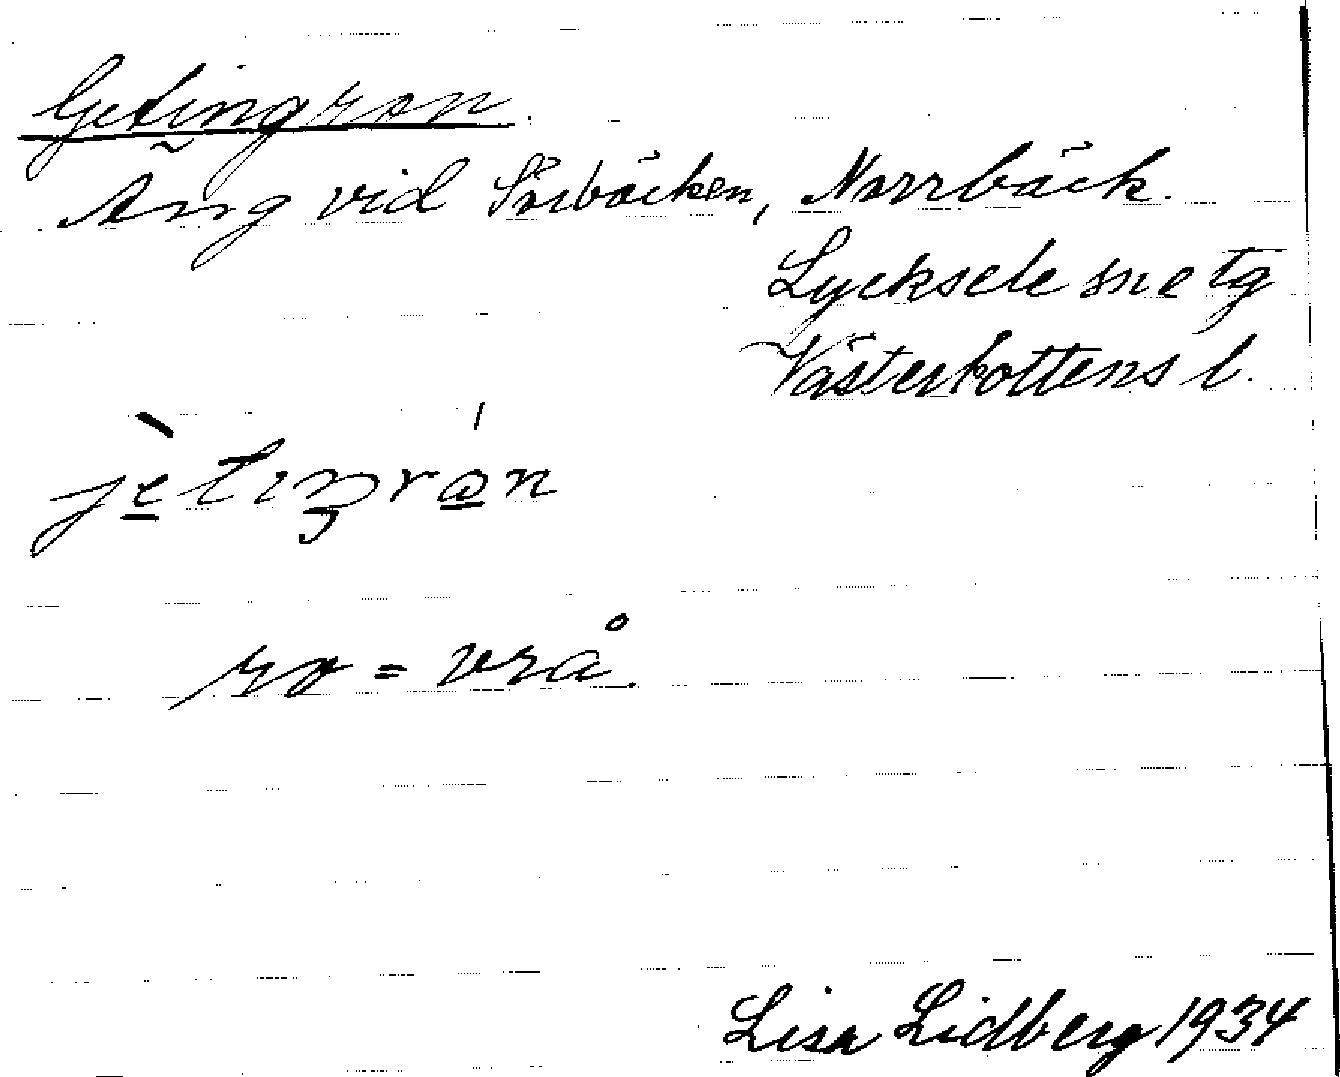 Getingron.
Äng vid Sörbäcken, Norrbäck.
Lycksele sn etg
Västerbottens l.
jètiŋrán
ro = vrå
Lisa Lidberg 1934